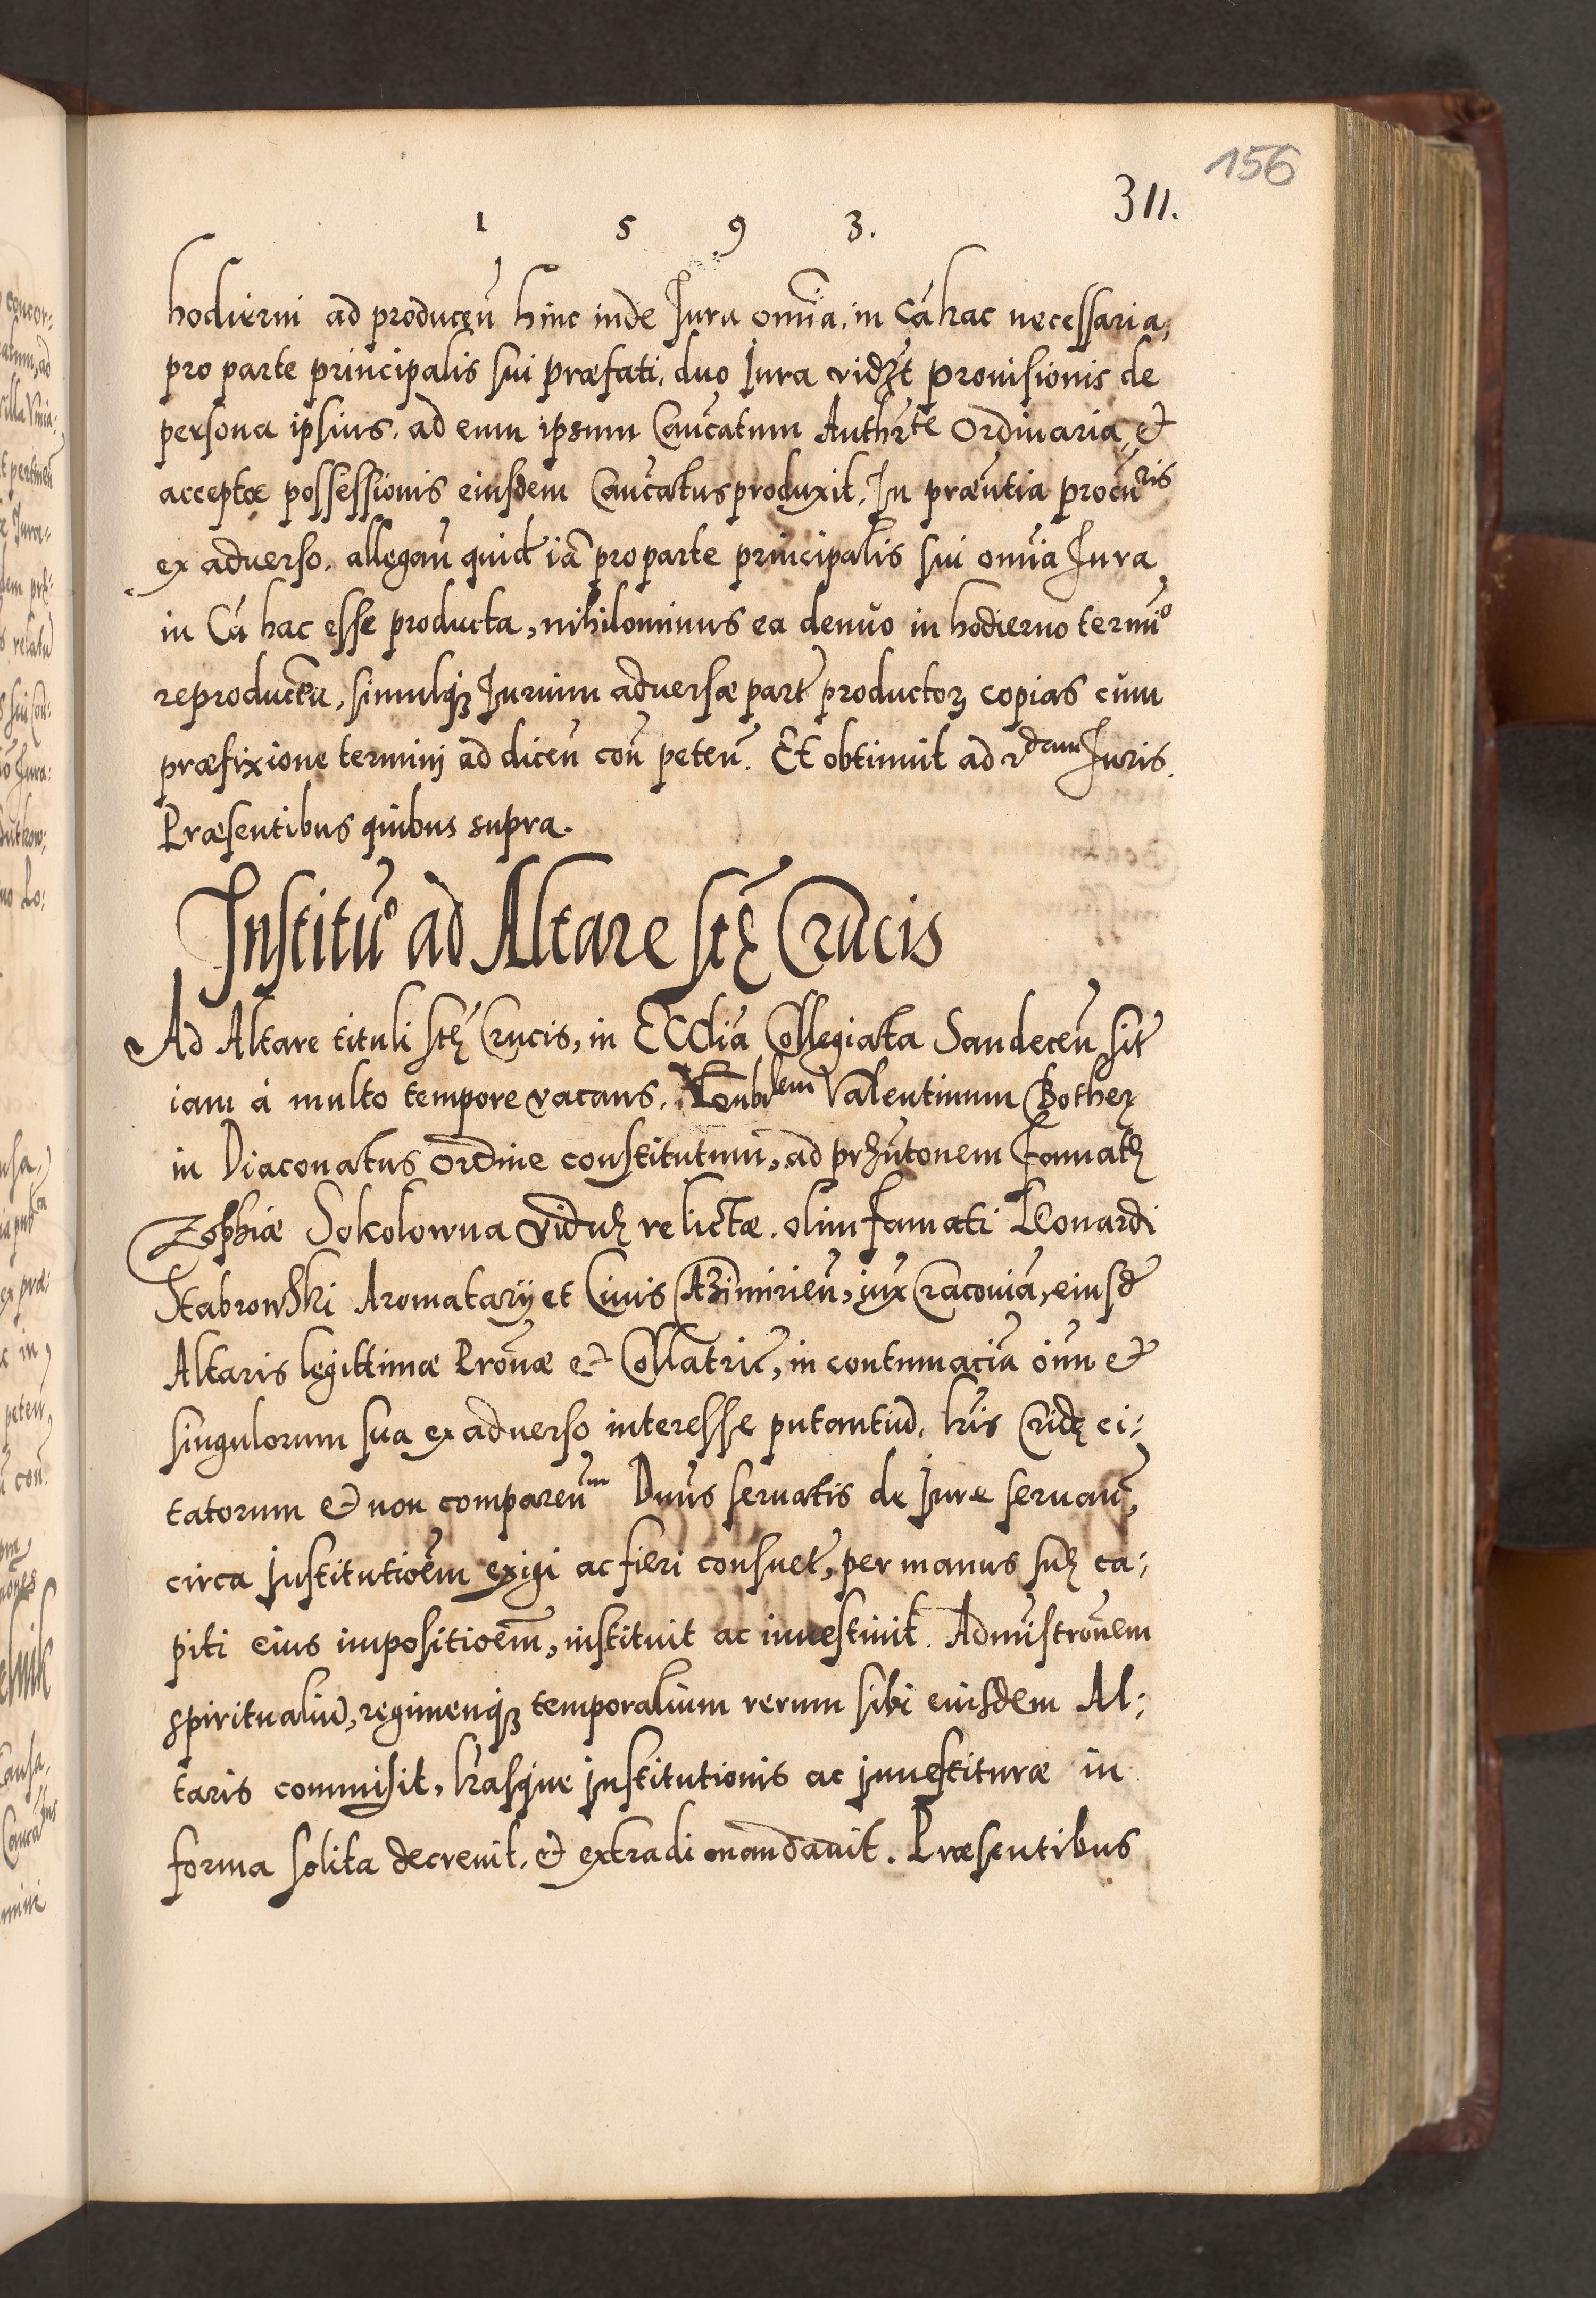 156
311.
1 5 9 3.
hodierni ad producen̄ hinc inde Jura omnia, in Cā hac necessaria,
pro parte principalis sui præfati, duo Jura vidzt prouisionis de
persona ipsius, ad eum ipsum Canc̄atum Authrte Ordinaria, et
acceptæ possessionis eiusdem Canc̄atus produxit. In præn̄tia procūris
ex aduerso, allegan̄ quid iā pro parte principalis sui omnia Jura
in Cā hac esse producta, nihilominus ea denuo in hodierno termīo
reproducen̄, simulqȝ Jurium aduersæ part̄ productoȝ copias cum
præfixione terminj ad dicen̄ con̄ peten̄. Et obtinuit ad 2dam Juris.
Præsentibus quibus supra.
Institūo ad Altare stę Crucis
Ad Altare tituli stę Crucis, in Ecclīa Collegiata Sandecen̄ sit̄
iam à multo tempore vacans. Valentinum Bother
in Diaconatus ordine constitutum, ad prȝn̄tonem Famatę
Zophiæ Sokolowna viduę relictæ olim famati Leonardi
Stabrowski Aromatarij et Ciuis Cazimirien̄, iux Cracouiā, eiusd̄
Altaris legittimæ Pron̄æ et Collatric̄, in contumaciā oīum et
singulorum sua ex aduerso interesse putantiū, lr̄is Cridę ci:
tatorum et non comparen̄m Dnūs seruatis de Jure seruan̄,
circa Institutioēm exigi ac fieri consuet̄, per manus suę ca:
piti eius impositioēm, instituit ac inuestiuit. Admīstron̄em
spiritualiū, regimenqȝ temporalium rerum sibi eiusdem Al:
taris commisit, lr̄asque Institutionis ac Inuestituræ in
forma solita decreuit, et extradi mandauit. Præsentibus